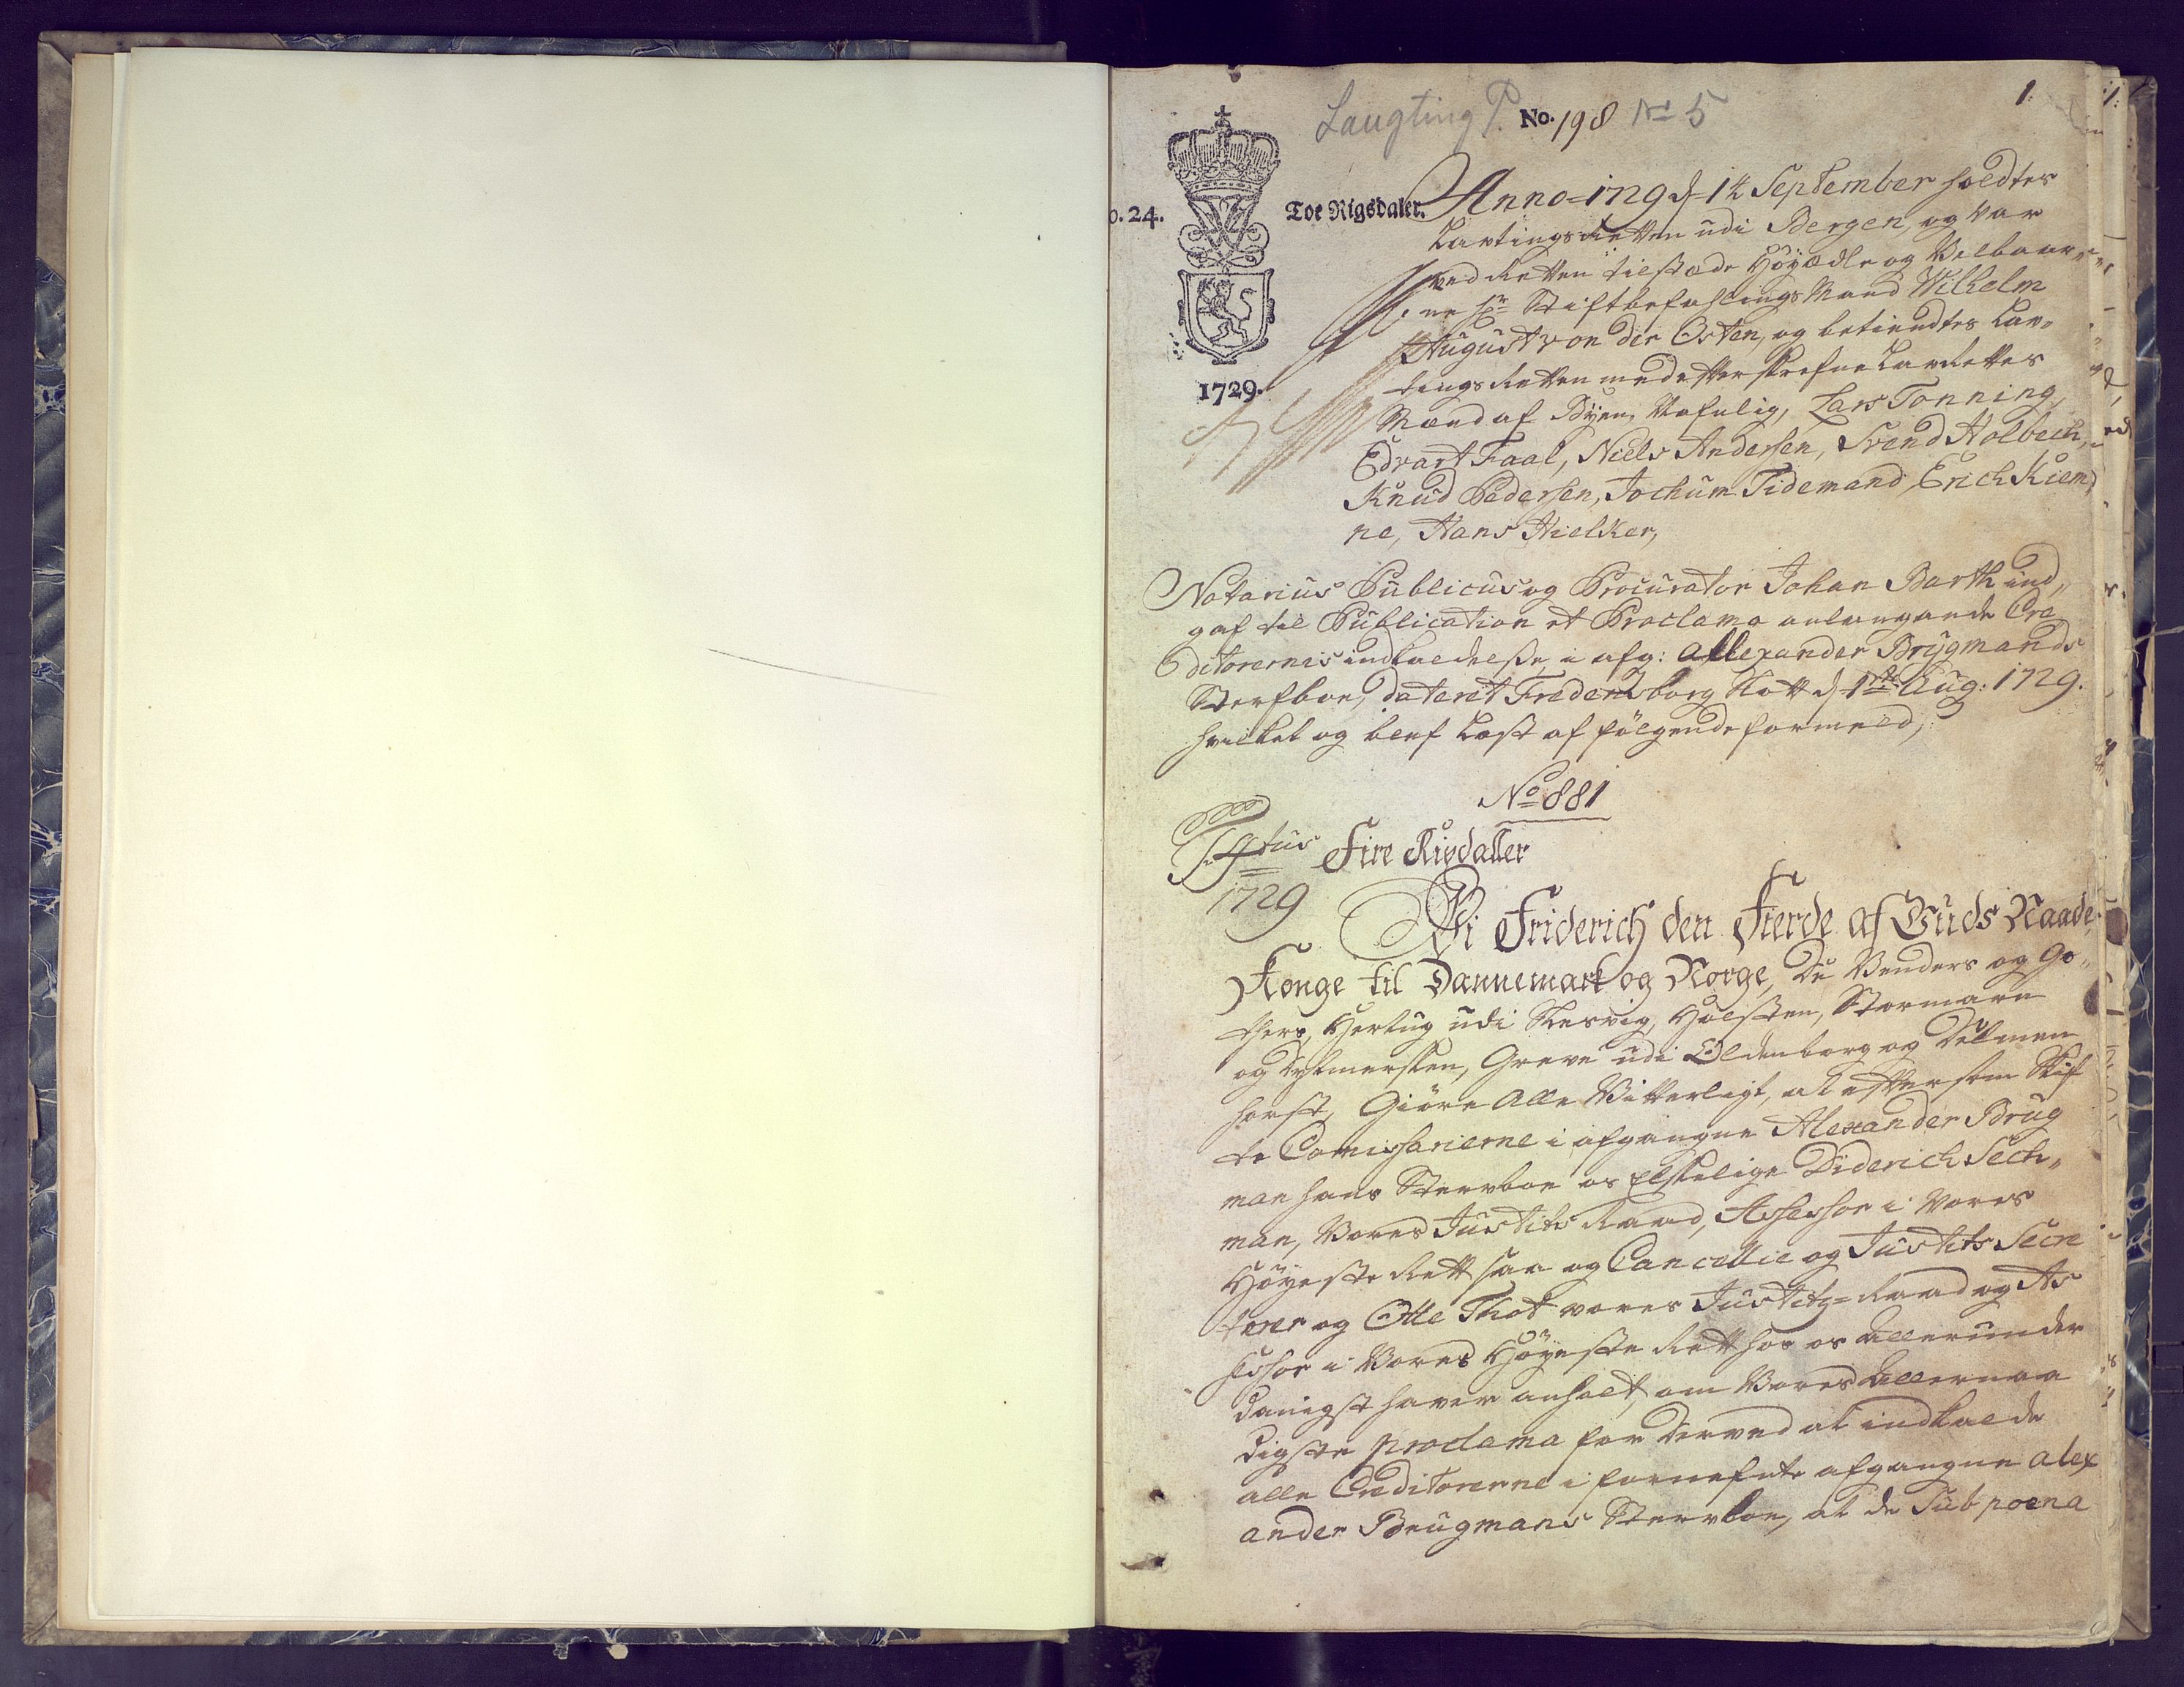 Laugting P. No. 198 No 5
1.
o. 24. Toe Rigsdaler. Anno = 1729 d 12 September holdtes
Lavtingsretten udi Bergen, og var
ved Retten tilstæde Høyædle og Velbaar„
„ne Hr Stiftbefahlings Mand Wilhelm
August von der Osten, og betiendtes Lav„
1729.
tings Retten med efterskrefne Lavrettes
Mænd af Byen, Nafnlig, Lars Tonning,
Edvart Faal, Niels Andersen, Svend Holbech,
Knud Pedersen, Jochum Tidemand, Erich Kiem
ne, Hans Hielker,
Notarius Publicus og Procurator Johan Barth ind„
gaf til Publication et Proclama anlangande Cre
ditorernis indkaldelsse i afg: Allexander Brygmands
Sterfboe, dateret Fredensborg Slott d 1ste Aug: 1729.
hvilket og blef Læst af følgende formeld,
No 881
4tus Fire Rixdaller
1729
Vi Friderich den Fierde af Guds Naade
Konge til Dannemark og Norge, De Venders og Go„
thers, Hertug udi Slesvig, Holsten, Stormarn
og Dytmersken, Greve udi Oldenborg og Delmen
horst, Giøre Alle Vitterligt, at eftersom Skif
te Comissarierne i afgangne Alexander Brug
man hans Stervboe os Elskelige Diderich Sech„
man, Vores Justits Raad, Assessor i Vores
Høyeste Rett saa og Cancellie og Justits Secre
terer og Otte Thot vores Justitz=Raad og As
sessor i Vores Høyeste Rett hos os Allerunder
danigst haver anholt, om Vores Allernaa
digste proclama for derved at indkalde
alle Creditorerne i fornefnte afgangne Alex
ander Brugmans Stervboe, at de Sub poena